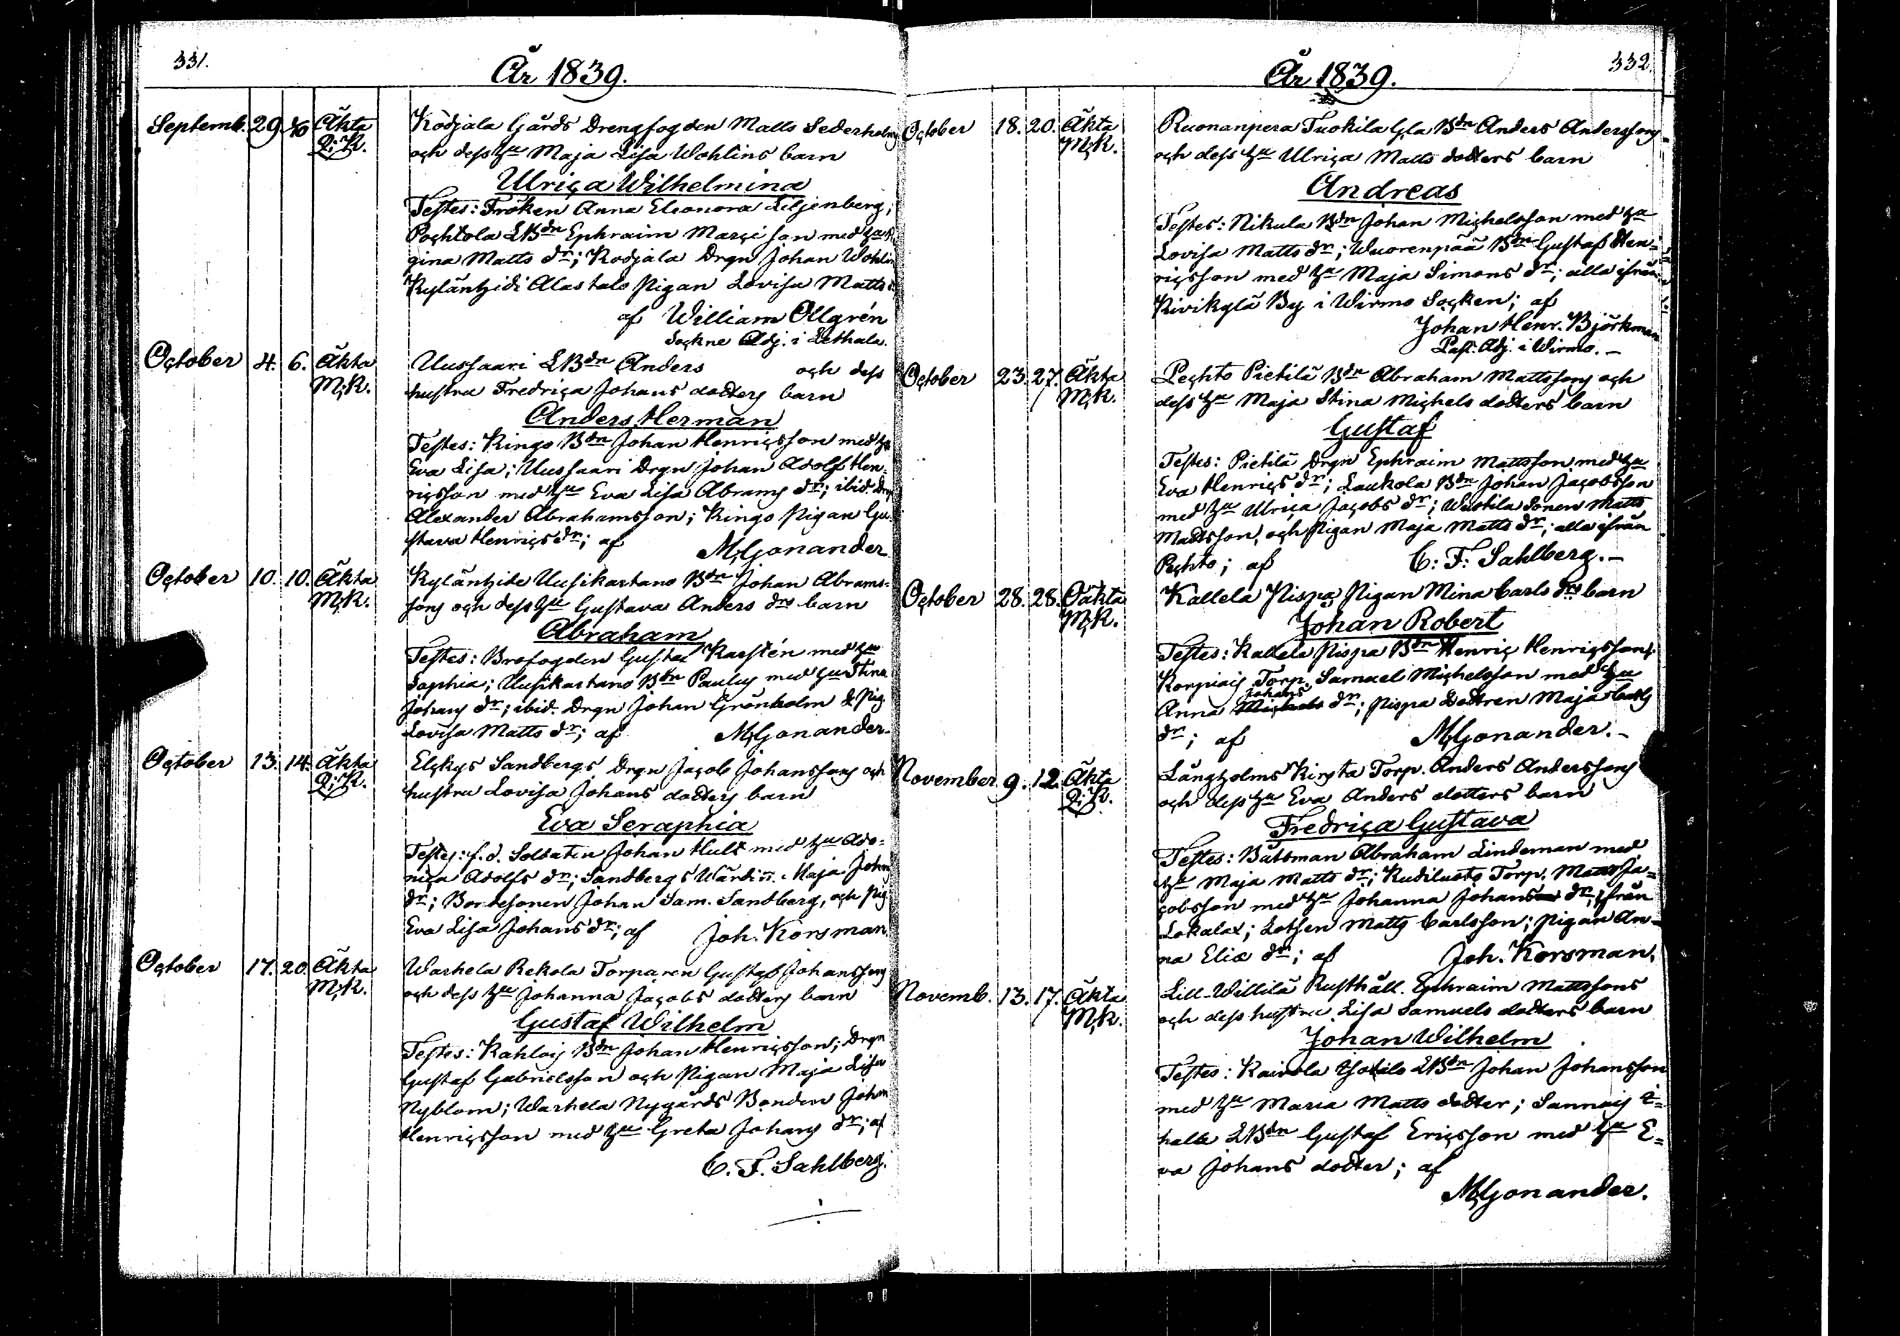 331.
År 1839.
Septemb. 29. 30 Äkta Q:K. Kodjala Gårds Drengfogden Matts Sederholms
och dess hu Maja Lisa Wohlins barn
Ulrica Wilhelmina
Testes: Fröken Anna Eleonora Liljenberg;
Pochtola LBdn Ephraim Marcisson med hu Re-
gina Matts dr; Kodjala Drgn Johan Wohlin
Kyläntzidi Alastalo Pigan Lovisa Matts d.
af William Ollgrén
Sockne Adj. i Lethala.
October 4. 6. Äkta M.K. Uussaari LBdn Anders och dess
hustru Fredrica Johans dotters barn
Anders Herman
Testes: Ringo Bdn Johan Henricsson med hu
Eva Lisa; Uussaari Drgn Johan Adolf Hen-
ricsson med hu Eva Lisa Abrams dr; ibid. Drgn
Alexander Abrahamsson; Ringo Pigan Gu-
stava Henrics dr; af M. Gonander
October 10. 10. Äkta M.K. Kyläntzide Uusikartano Bdn Johan Abrams-
sons och dess hu Gustava Anders drs barn
Abraham
Testes: Brofogden Gustaf Karstén med hu
Sophia; Uusikartano Bdn Paulus med hu Stina
Johans dr; ibid. Drgn Johan Grönholm & Pig.
Lovisa Matts dr; af M. Gonander.
October 13. 14. Äkta Q:K. Elckys Sandbergs Drgn Jacob Johanssons och
hustru Lovisa Johans dotters barn
Eva Seraphia
Testes: f.d. Soldaten Johan Hult med hu Ado-
nica Adolfs dr; Sandbergs Maja Johans
dr; Bondesonen Johan Sam. Sandberg, och Pig.
Eva Lisa Johans dr; af Joh. Korsman.
October 17. 20. Äkta M.K. Warhela Rekola Torparen Gustaf Johanssons
och dess hu Johanna Jacobs dotters barn
Gustaf Wilhelm
Testes: Kahlois Bdn Johan Henricsson; Drgn
Gustaf Gabrielsson och Pigan Maja Lisa
Nyblom; Warhela Nygårds Bonden Johan
Henricsson med hu Greta Johans dr; af
C. F. Sahlberg.
332.
År 1839.
October 18. 20. Äkta M.K. Ruonanpera Tuokila Gla Bdn Anders Anderssons
och dess hu Ulrica Matts dotters barn
Andreas
Testes: Nikula Bdn Johan Michelsson med hu
Lovisa Matts dr; Wuorenpää Bdn Gustaf Hen-
ricsson med hu Maja Simons dr; alla ifrån
Kivikylä By i Wirmo Socken; af
Johan Henr. Björkman
Past. Adj. i Wirmo.
October 23. 27. Äkta M.K. Pechto Pietilä Bdn Abraham Mattssons och
dess hu Maja Stina Michels dotters barn
Gustaf
Testes: Pietilä Drgn Ephraim Mattsson med hu
Eva Henrics dr; Laukola Bdn Johan Jacobsson
med hu Ulrica Jacobs dr; sonen Matts
Mattsson, och Pigan Maja Matts dr; alla ifrån
Pechto; af C. F. Sahlberg.
October 28. 28. Oäkta M.K. Kallela Pispa Pigan Mina Carls drs barn
Johan Robert
Testes: Kallela Pispa Bdn Henric Henricsson;
Korpiais Torp. Samuel Michelsson med hu
Anna Johans dr; Pispa Dottren Maja Carls
dr; af M. Gonander.
November 9. 12. Äkta Q:K. Långholms Kirsta Torp. Anders Anderssons
och dess hu Eva Anders dotters barn
Fredrica Gustava
Testes: Båtsman Abraham Lindeman med
hu Maja Matts dr; Kudiluoto Torp. Matts Ja-
cobsson med hu Johanna Johans dr; ifrån
Lokalax; Lotsen Matts Carlsson; Pigan An-
na Elia dr; af Joh. Korsman.
Novemb. 13. 17. Äkta M.K. Lill-Willilä Rusthåll. Ephraim Mattssons
och dess hustru Lisa Samuels dotters barn
Johan Wilhelm
Testes: Kaivola LBdn Johan Johansson
med hu Maria Matts dotter; Sannais
LBdn Gustaf Ericsson med hu E-
va Johans dotter; af
M. Gonander.